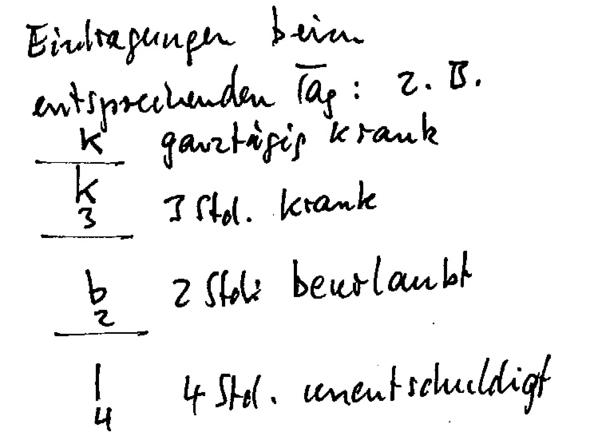 Eintragungen beim
entsprechenden Tag: z. B.
k ganztägig krank
k
3 3 Std. krank
b
2 2 Std. beurlaubt
|
4 4 Std. unentschuldigt